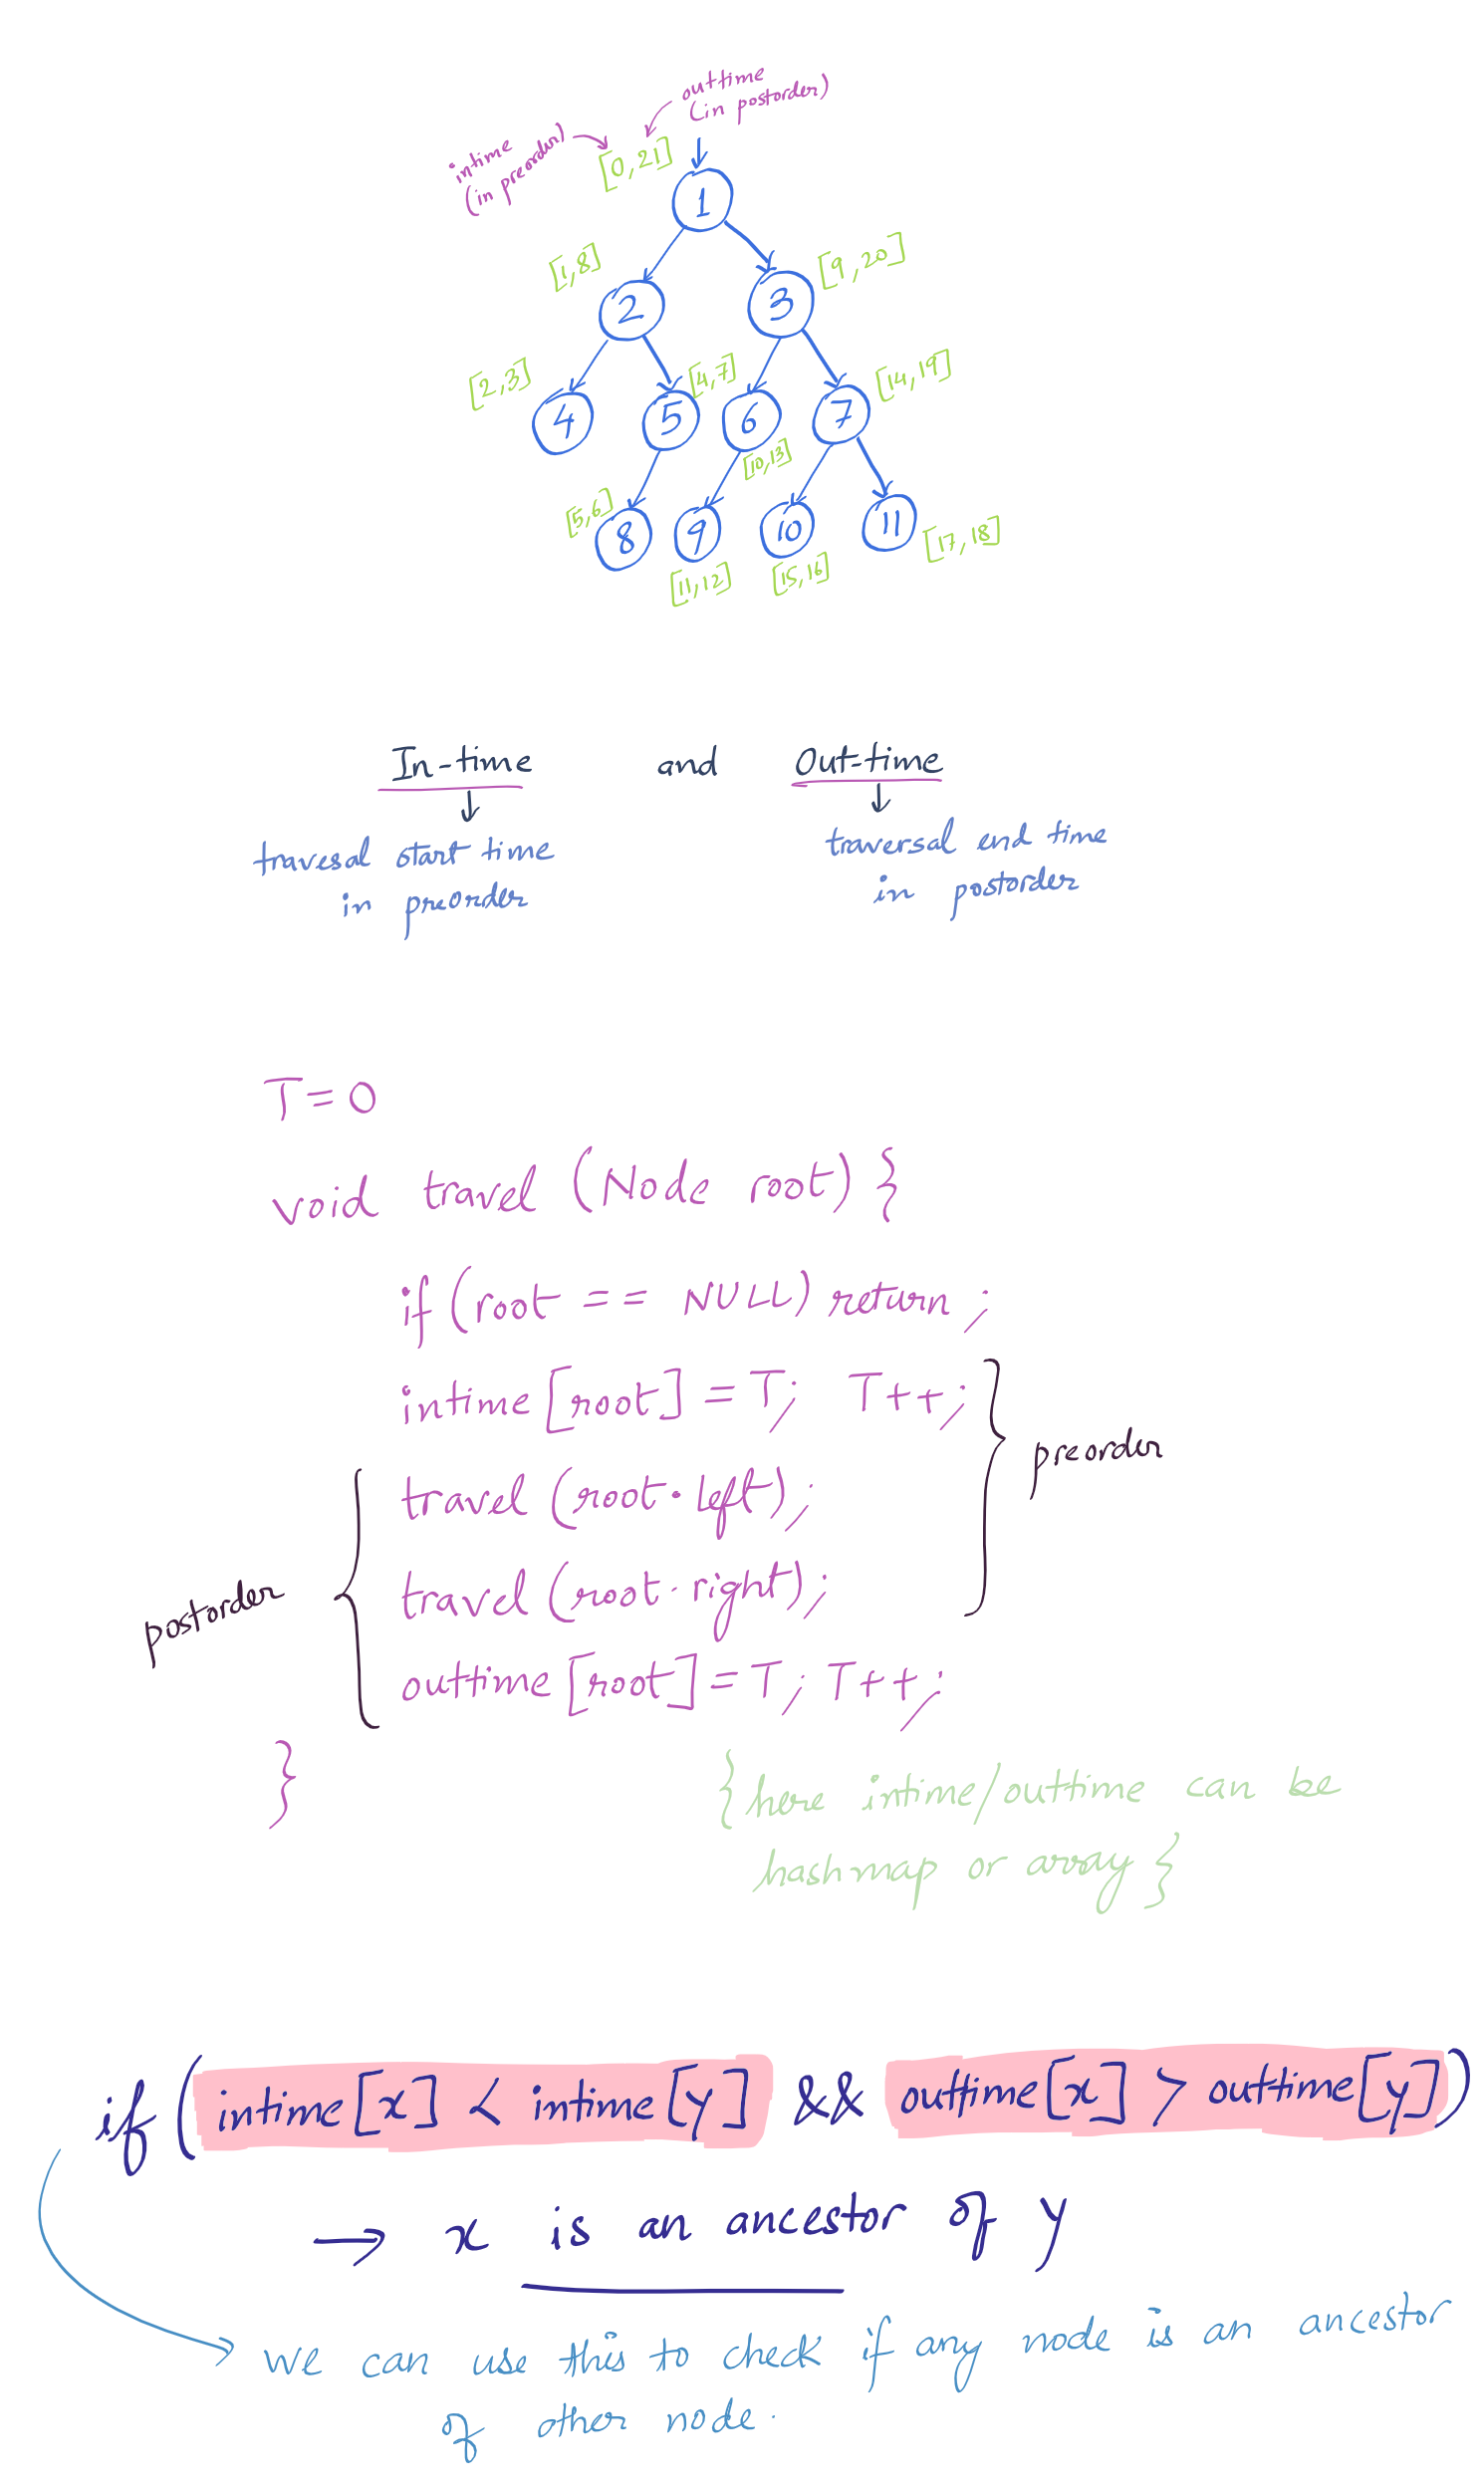 outtime
(in postorder)
intime
(in preorder)
[0,21]
1
[1,8]
[9,20]
2
3
[2,3]
[4,7]
[14,19]
4
5
6
7
[10,13]
[5,6]
8
9
10
11
[11,12]
[15,16]
[17,18]
In-time and Out-time
travesal start time
in preorder
traversal end time
in postorder
T=0
void travel (Node root) {
if (root == NULL) return ;
intime [root] = T; T++;
preorder
travel (root.left);
travel (root.right);
postorder
outtime [root] = T; T++;
}
{here intime/outtime can be
hashmap or array}
if (intime[x] < intime[y] && outtime[x] > outtime[y])
→ x is an ancestor of y
we can use this to check if any node is an ancestor
of other node.